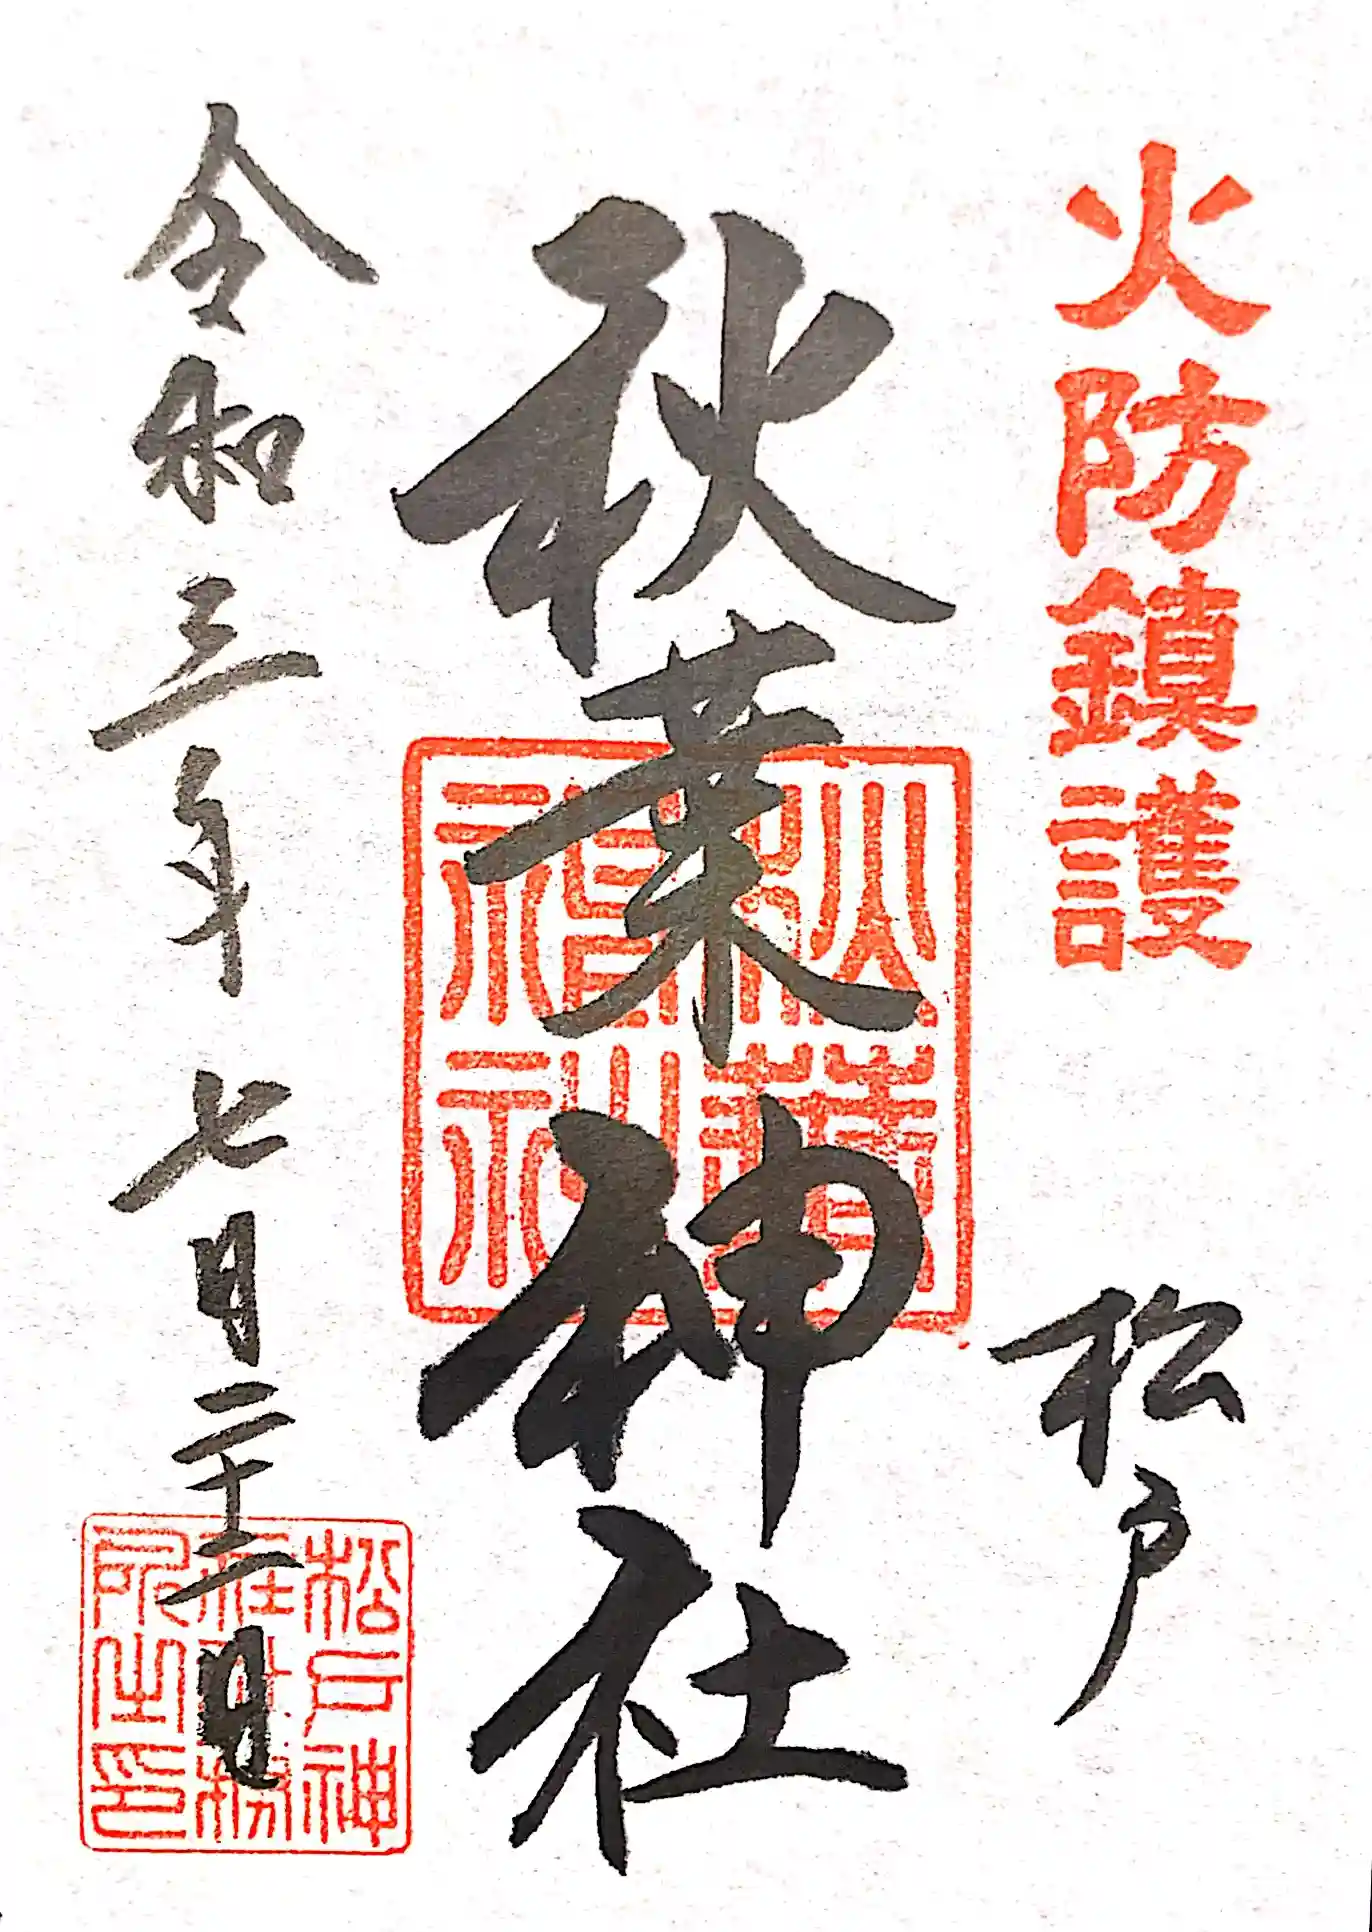 火防鎮護
松戸
秋葉神社
秋葉
神社
令和三年七月二十二日
松戸神
社社務
所之印